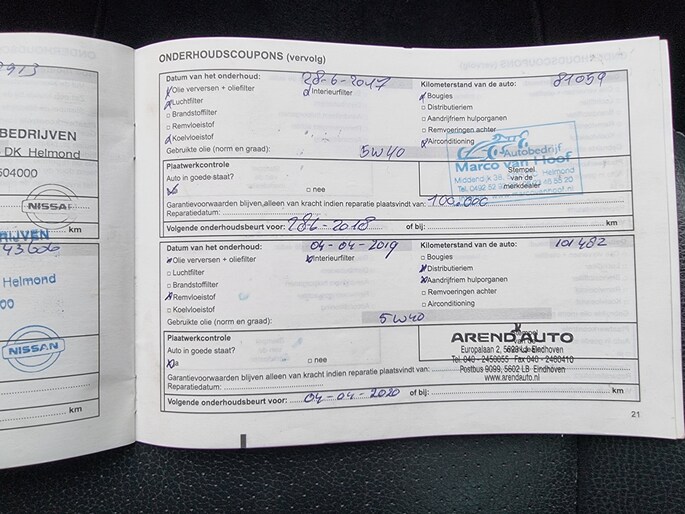 3913
BEDRIJVEN
DK Helmond
504000
NISSAN
RIJVEN
43606
Helmond
00
NISSAN
km
km
ONDERHOUDSCOUPONS (vervolg)
Datum van het onderhoud: 28-6-2017 Kilometerstand van de auto: 81059
Olie verversen + oliefilter Interieurfilter Bougies
Luchtfilter Distributieriem
Brandstoffilter Aandrijfriem hulporganen
Remvloeistof Remvoeringen achter
Koelvloeistof Airconditioning
Gebruikte olie (norm en graad): 5W40
Autobedrijf
Marco van Hoof
Middendijk Helmond
Tel. 0492 52
Stempel
van de
merkdealer
Plaatwerkcontrole
Auto in goede staat?
nee
Garantievoorwaarden blijven, alleen van kracht indien reparatie plaatsvindt van: 100.000
Reparatiedatum:
Volgende onderhoudsbeurt voor: 286-2018 of bij: km
Datum van het onderhoud: 04-04-2019 Kilometerstand van de auto: 101482
Olie verversen + oliefilter Interieurfilter Bougies
Luchtfilter Distributieriem
Brandstoffilter Aandrijfriem hulporganen
Remvloeistof Remvoeringen achter
Koelvloeistof Airconditioning
Gebruikte olie (norm en graad): 5W40
Plaatwerkcontrole
Auto in goede staat?
ja nee
Stempel
AREND AUTO
Europalaan 2, 5623 LJ Eindhoven
Tel. 040 - 2450055 Fax 040 - 2460410
Postbus 9099, 5602 LB Eindhoven
www.arendauto.nl
Garantievoorwaarden blijven alleen van kracht indien reparatie plaatsvindt van:
Reparatiedatum:
Volgende onderhoudsbeurt voor: 04-04-2020 of bij: km
21